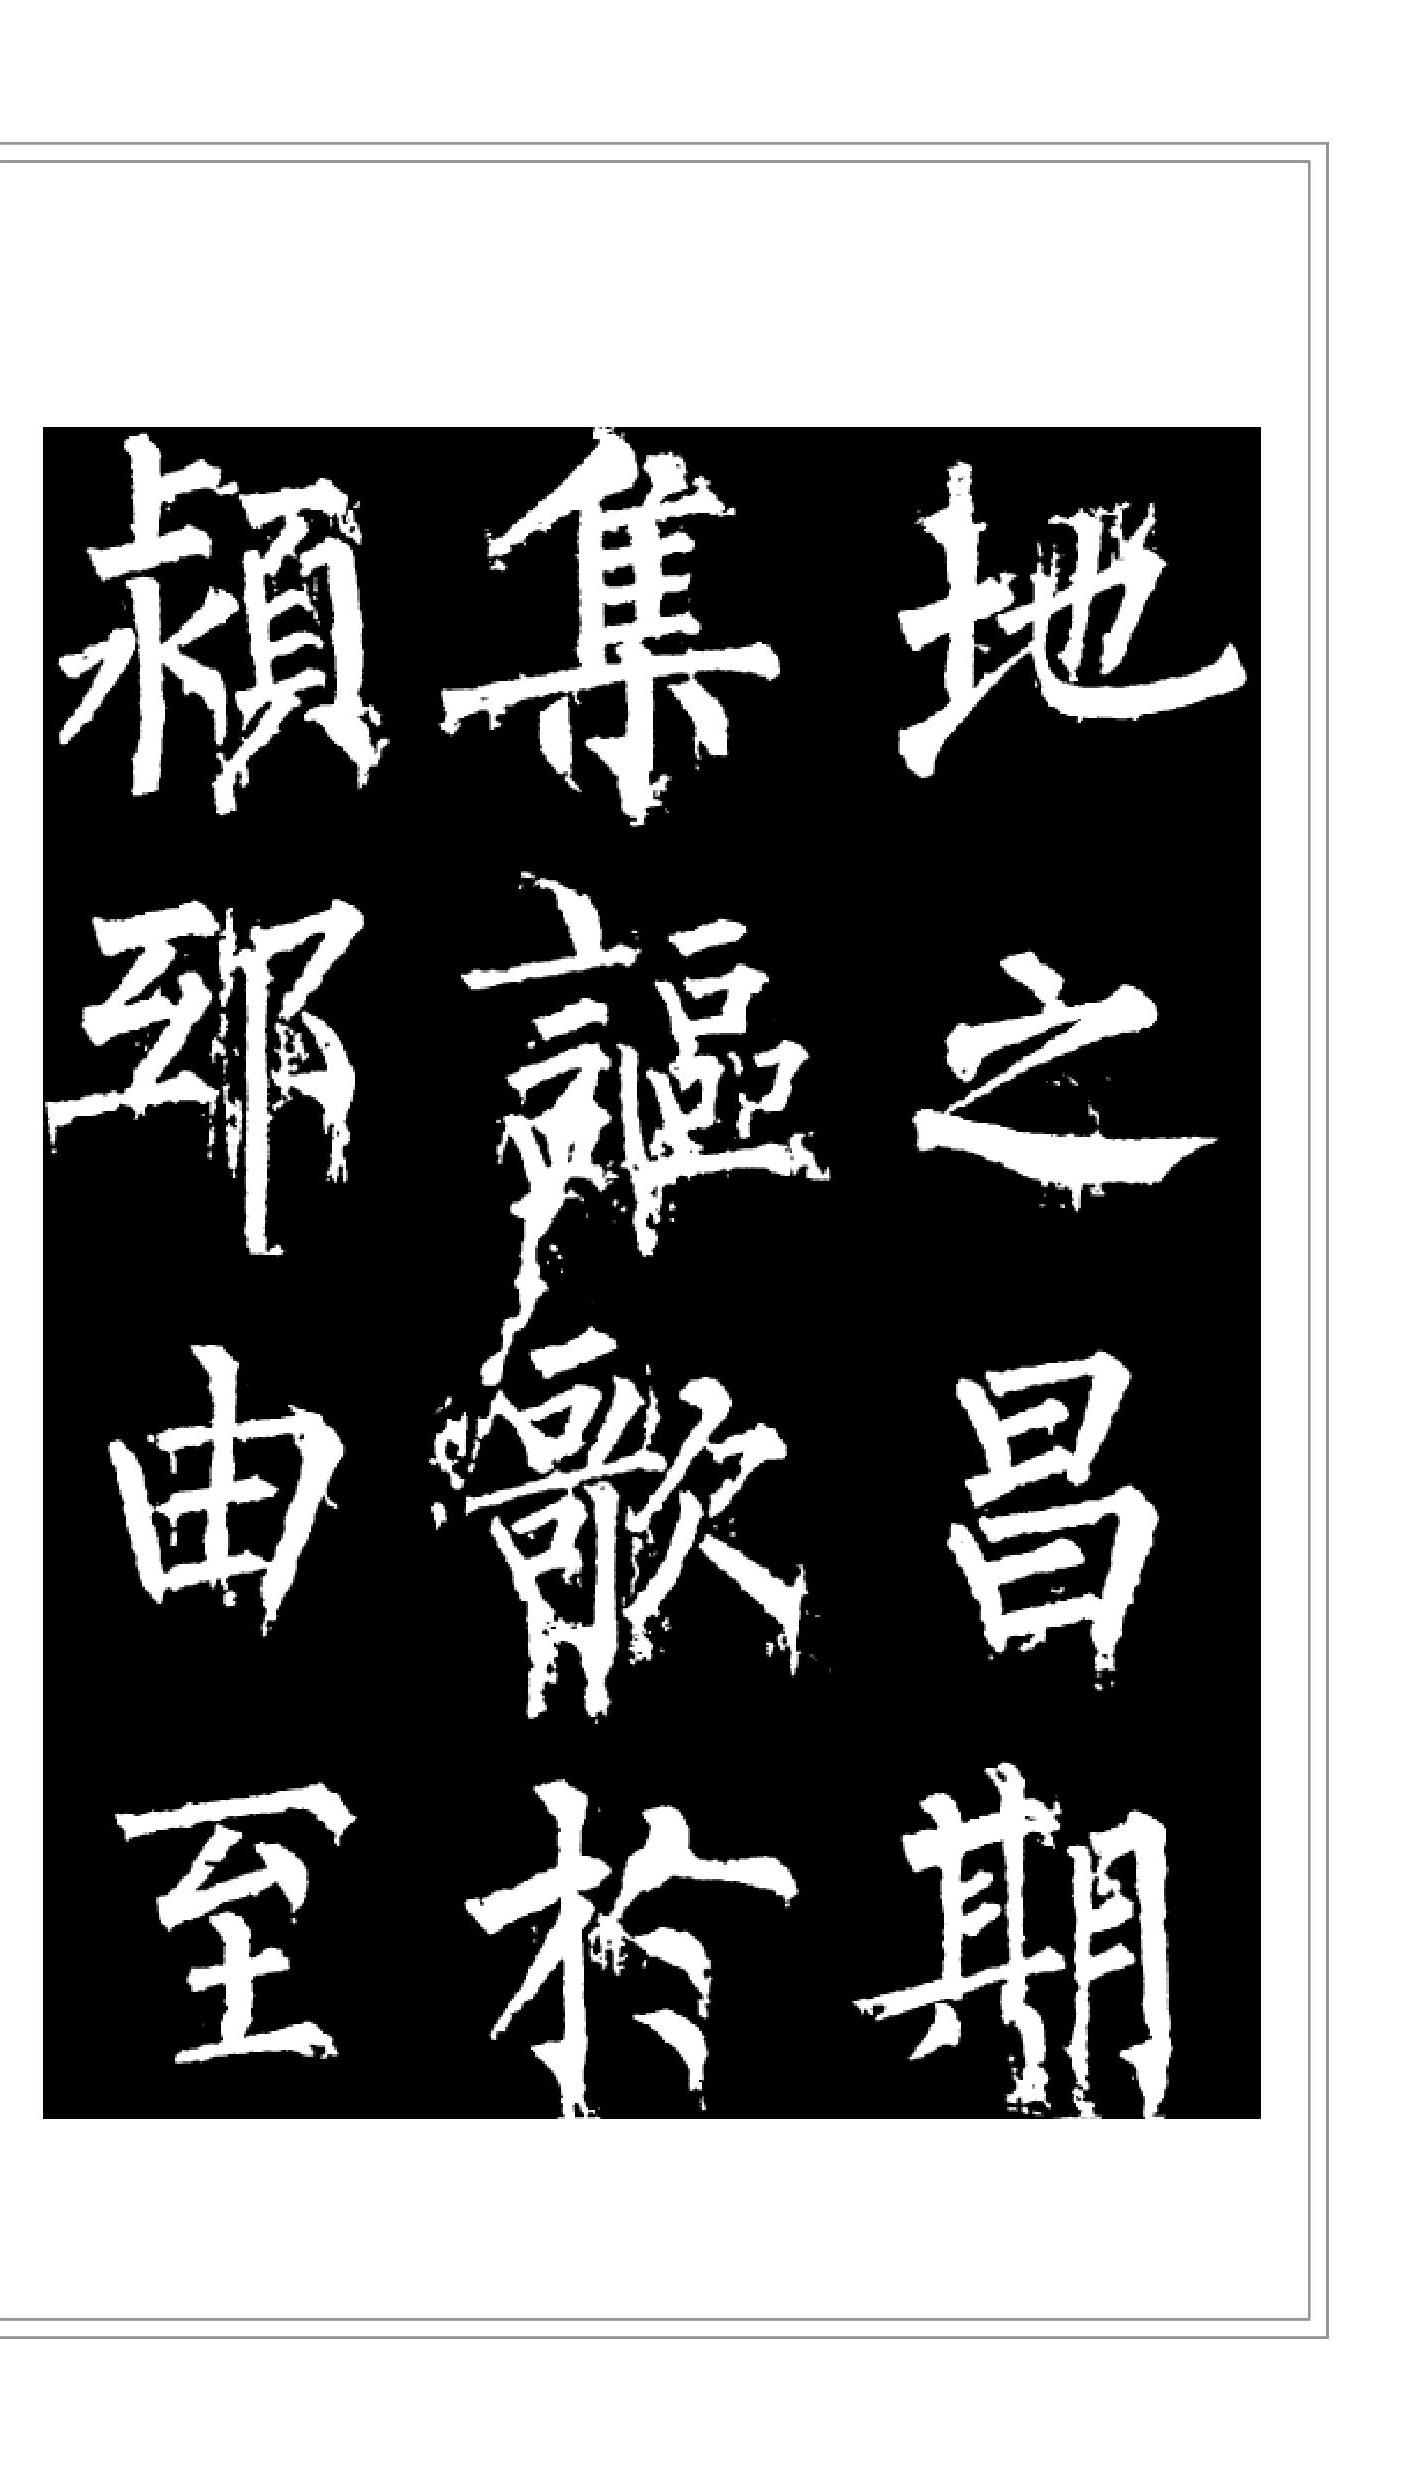 地之昌期
集謳歌於
潁邸由至